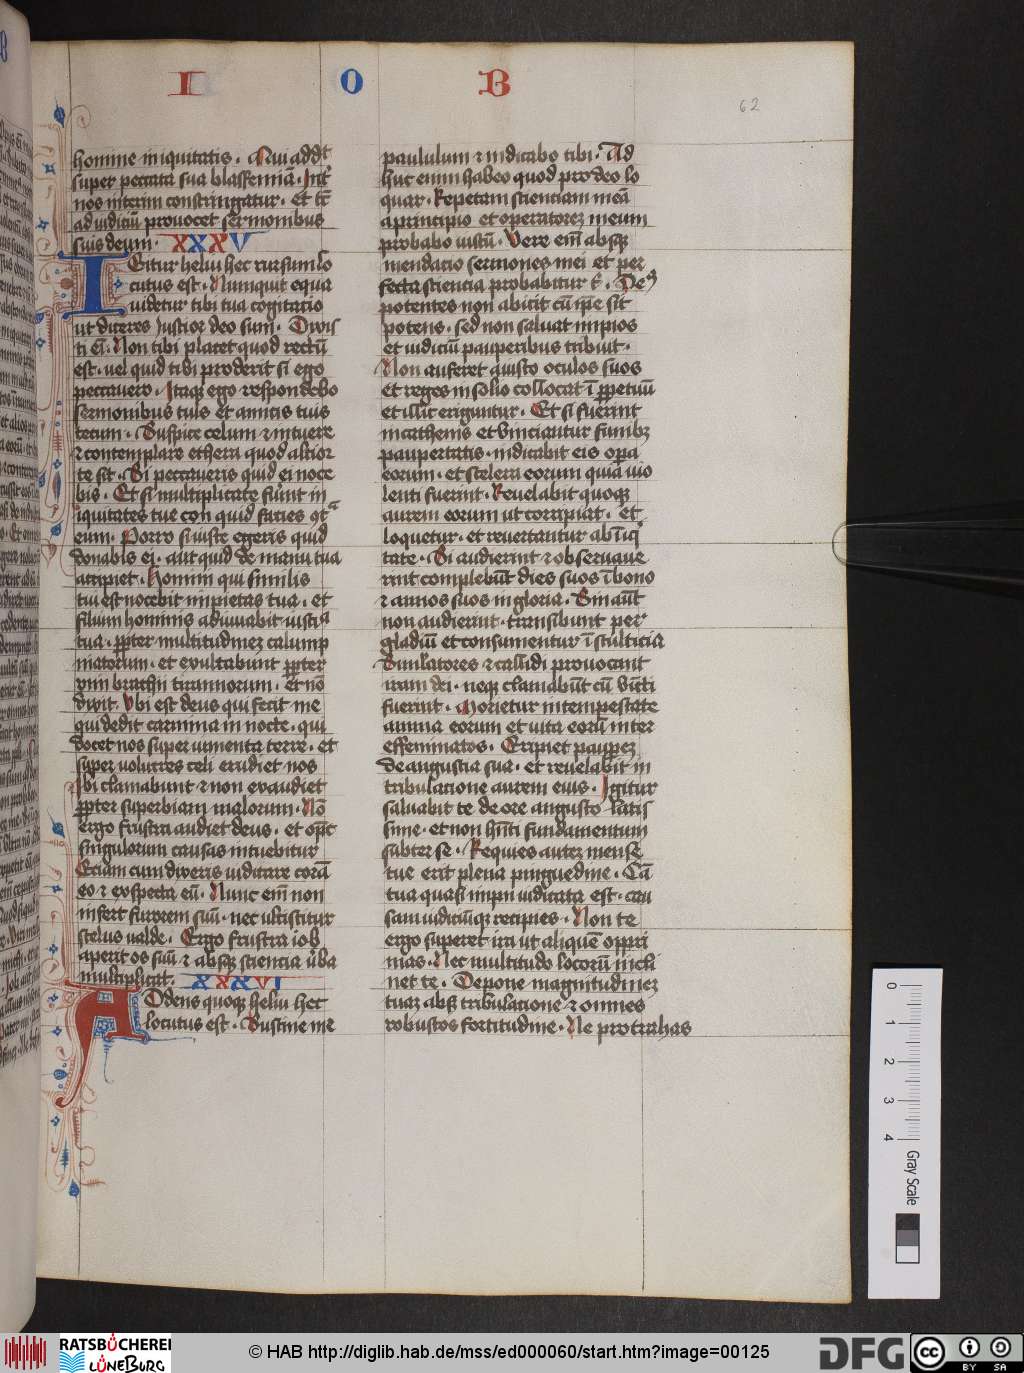 I O B
62
homine iniquitatis. Qui addit
super peccata sua blasfemiā. Int̄
nos interim constringatur. et tc̄
ad iudiciū prouocet sermonibus
suis deum. XXXV
Igitur heliu hec rursum lo
cutus est. Numquit equa
uidetur tibi tua cogitatio
ut diceres Iustior deo sum. Dixis
ti em̄. Non tibi placet quod rectū
est. uel quid tibi proderit si ego
peccauero. Itaqꝫ ego respondebo
sermonibus tuis et amicis tuis
tecum. Suspice celum ⁊ intuere
⁊ contemplare ethera quod altior
te sit. Si peccaueris quid ei noce
bis. Et si multiplicate fuīnt in
iquitates tue con quid facies ꝯtᵃ
eum. Porro si iuste egeris quid
donabis ei. aut quid de manu tua
accipiet. Homini qui similis
tui est nocebit impietas tua. et
filium hominis adiuuabit iusticᵃ
tua. ꝓpter multitudinez calump
niatorum. et exultabunt ꝓpter
uim brachij tirannorum. et nō
dixit. Vbi est deus qui fecit me
qui dedit carmina in nocte. qui
docet nos super iumenta terre. et
super volucres celi erudiet nos
Ibi clamabunt ⁊ non exaudiet
ꝓpter superbiam malorum. Nō
ergo frustra audiet deus. et oīpc̄
singulorum causas intuebitur
Eciam cum dixeris iudicare corā
eo ⁊ exspecta eū. Nunc em̄ non
infert furorem suū. nec ulciscitur
scelus ualde. Ergo frustra iob
aperit os suū ⁊ absqꝫ sciencia ūba
multiplicat. XXXVI
Addens quoqꝫ heliu hec
locutus est. Sustine me
paululum ⁊ indicabo tibi. Ad
huc enim habeo quod pro deo lo
quar. Repetam scienciam meā
a principio et operatorez meum
probabo iustū. Vere em̄ absqꝫ
mendacio sermones mei et per
fecta sciencia probabitur t̄. Deꝰ
potentes non abicit cū ip̄e sit
potens. sed non saluat impios
et iudiciū pauperibus tribuit.
Non auferet a iusto oculos suos
et reges in solio collocat ī ꝑpetuū
et illic eriguntur. Et si fuerint
in cathenis et vinciantur funibꝫ
paupertatis. indicabit eis oꝑa
eorum. et scelera eorum quia uio
lenti fuerint. Reuelabit quoqꝫ
aurem eorum ut corripiat. et
loquetur. et reuertantur ab īiqⁱ
tate. Si audierint ⁊ obseruaue
rint complebūt dies suos ī bono
⁊ annos suos in gloria. Sin aūt
non audierint. transibunt per
gladiū et consumentur ī stulticia
Simulatores ⁊ callidi prouocant
iram dei. neqꝫ clamabūt cū vīcti
fuerint. Morietur in tempestate
anima eorum et uita eorū inter
effeminatos. Eripiet pauperez
de angustia sua. et reuelabit in
tribulacione aurem eius. Igitur
saluabit te de ore angusto latis
sime. et non hn̄ti fundamentum
subter se. Requies autez mense
tue erit plena pinguedine. Cā
tua quasi impii iudicata est. cau
sam iudiciūqꝫ recipies. Non te
ergo superet ira ut aliquē oppri
mas. Nec multitudo locorū incli
net te. Depone magnitudinez
tuaz absqꝫ tribulacione ⁊ omnes
robustos fortitudine. Ne protrahas
0
1
2
3
4
Gray Scale
RATSBÜCHEREI
LÜNEBURG
© HAB http://diglib.hab.de/mss/ed000060/start.htm?image=00125
DFG
cc BY SA